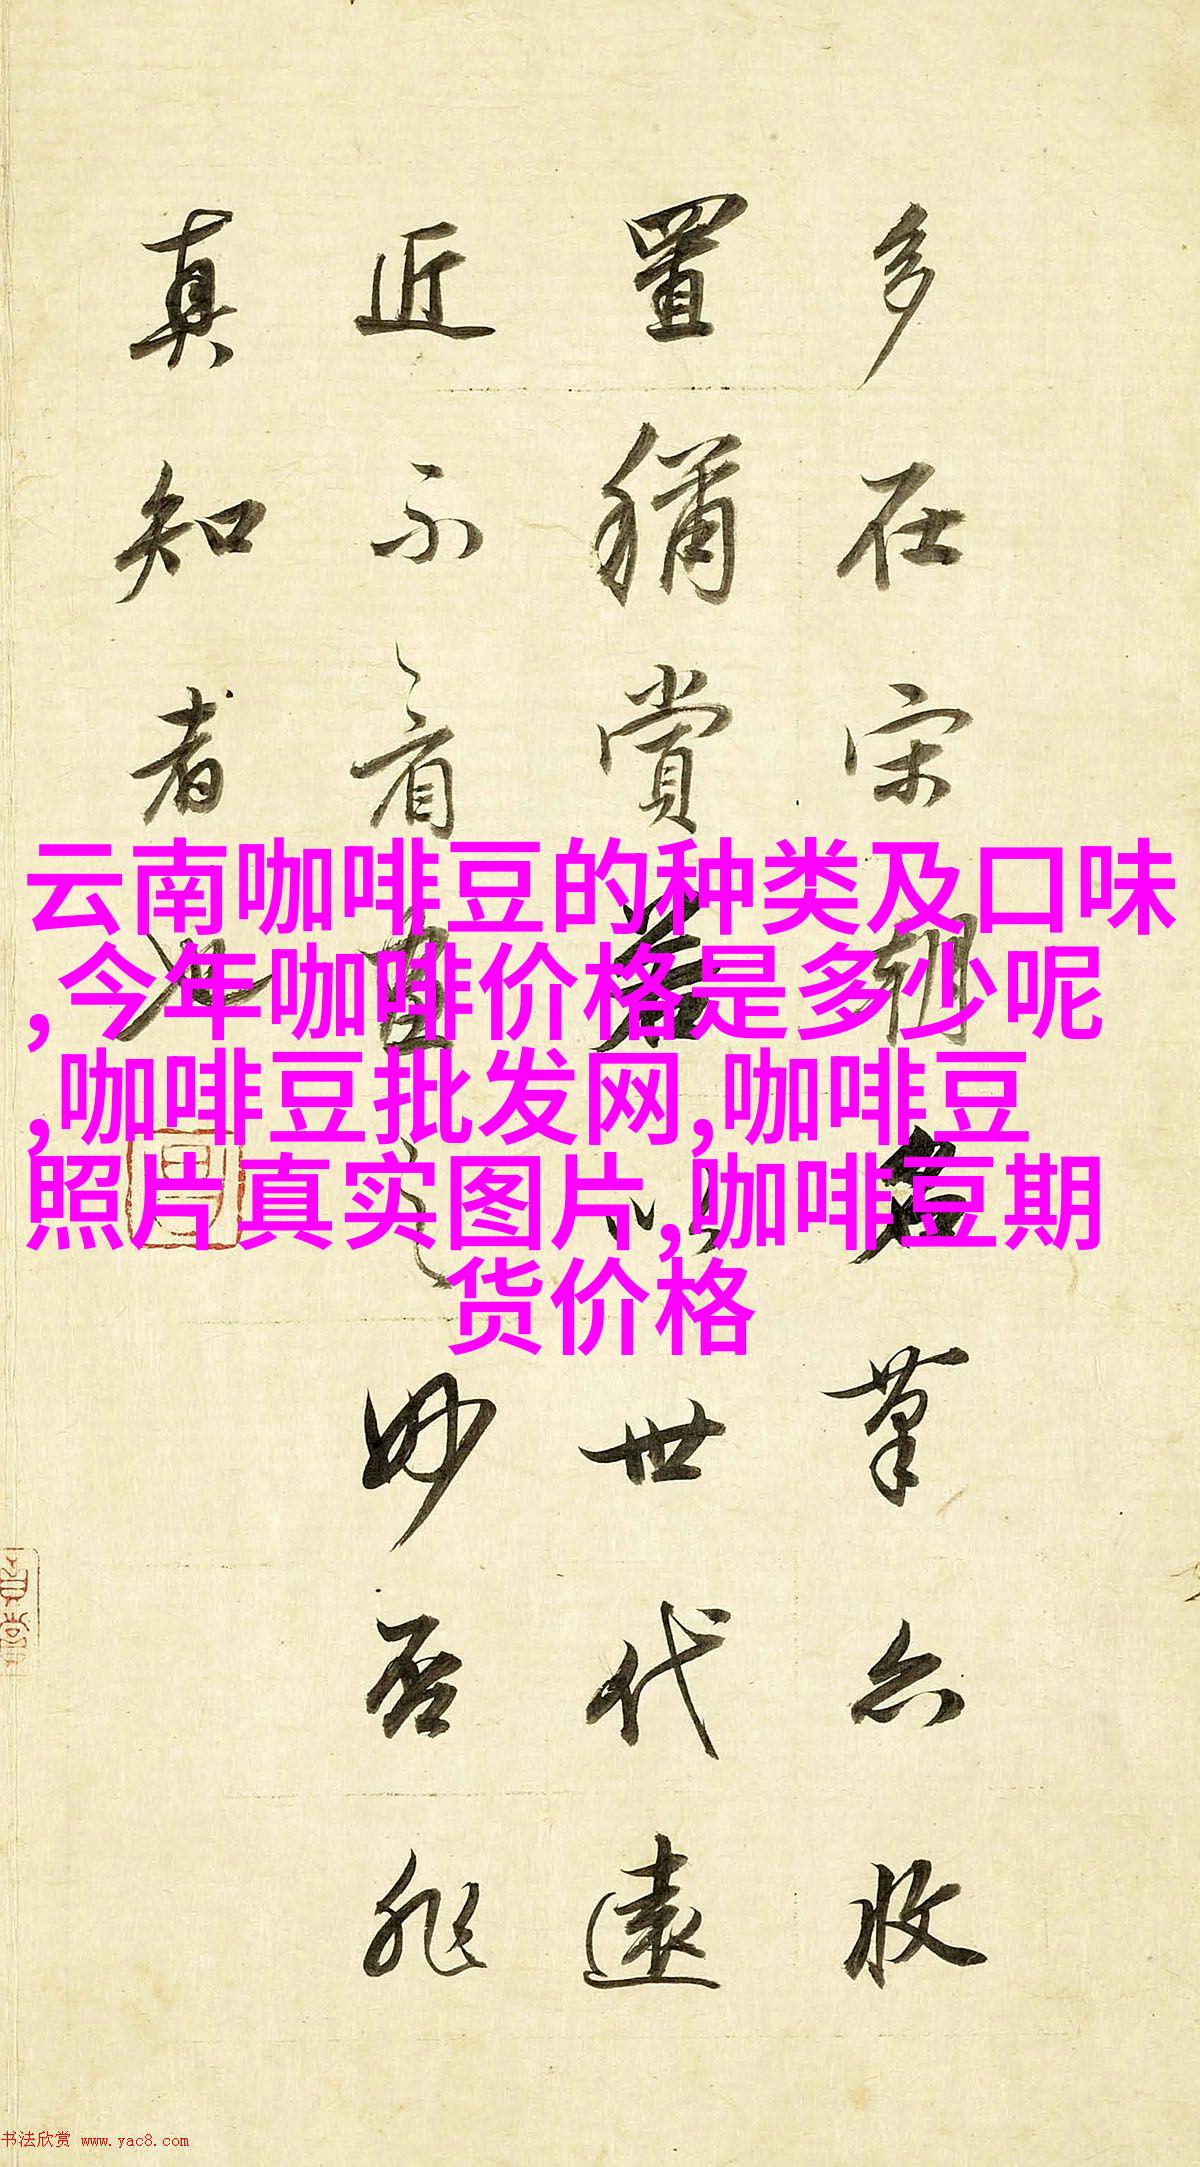 多在宋朝名筆亦收
置稱賞若以世代遠
近不看畫之妙否非
真知者也
云南咖啡豆的种类及口味
,今年咖啡价格是多少呢
,咖啡豆批发网,咖啡豆
照片真实图片,咖啡豆期
货价格
书法欣赏 www.yac8.com